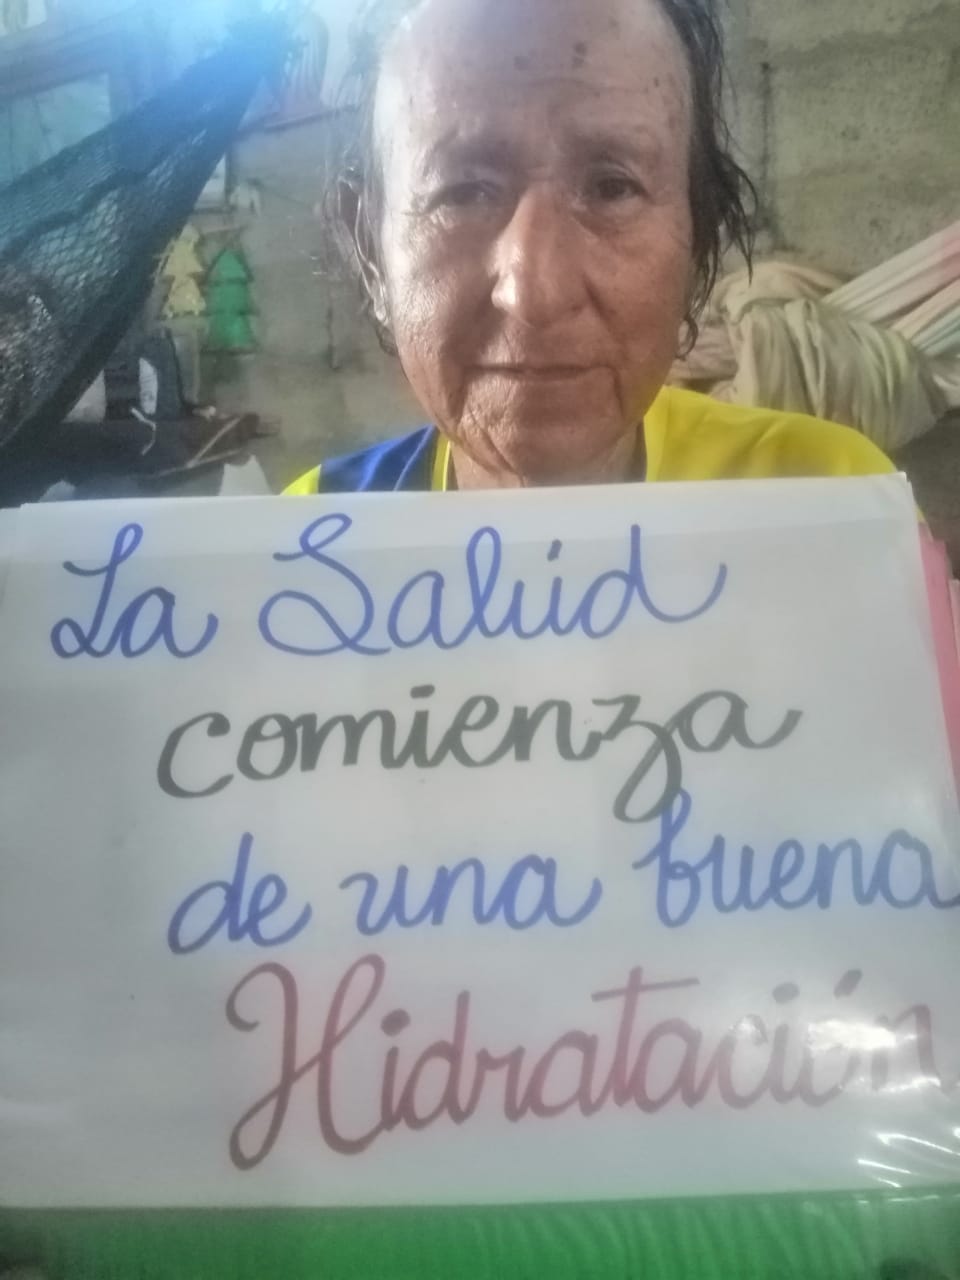 La Salud
comienza
de una buena
Hidratación